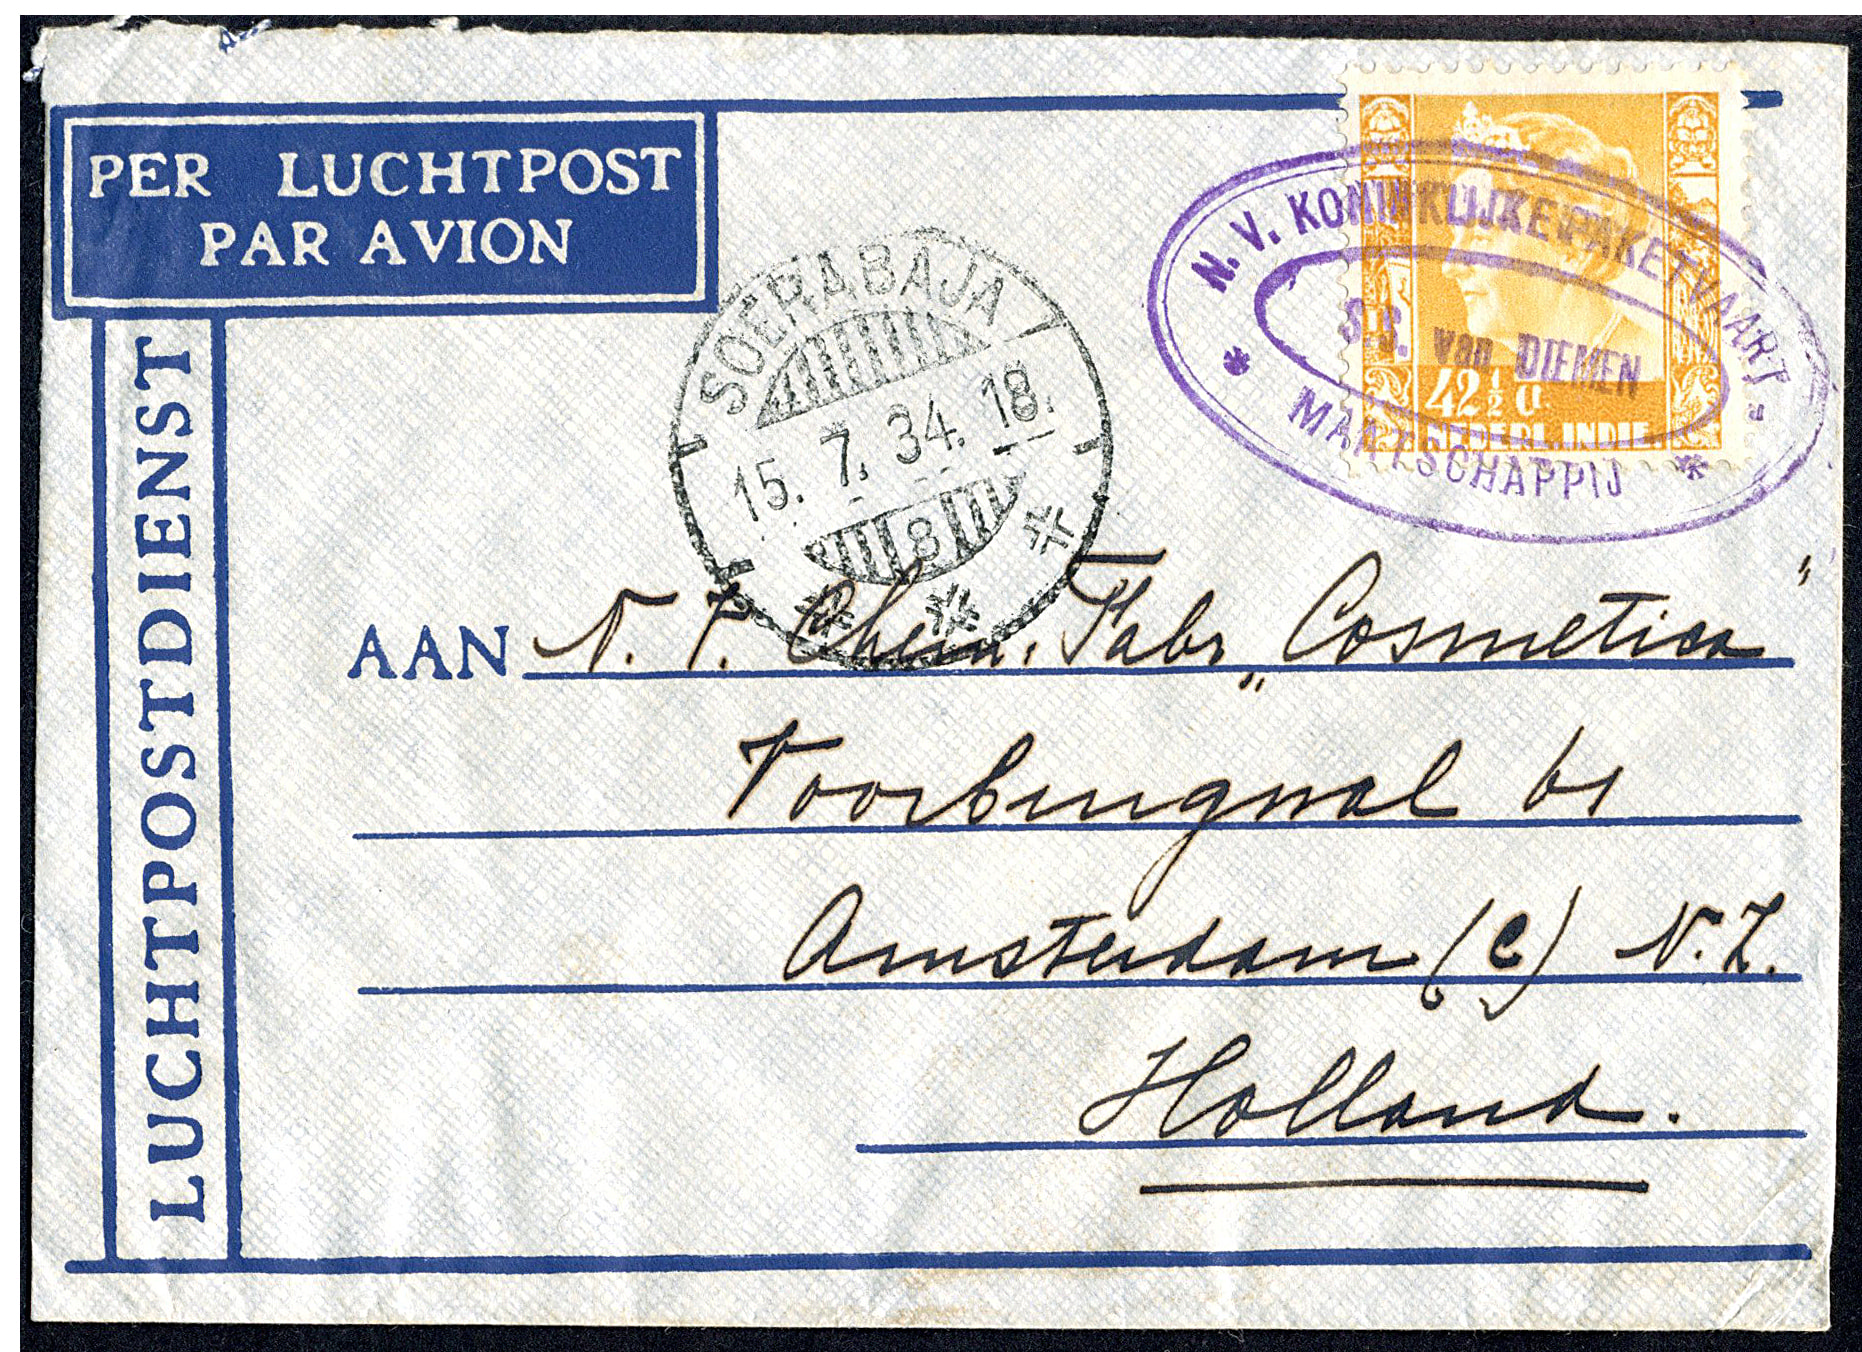 PER LUCHTPOST
PAR AVION
LUCHTPOSTDIENST
SOERABAJA
15. 7. 34. 18.
8
N.V. KONINKLIJKE PAKETVAART-
S.S. van DIEMEN
MAATSCHAPPIJ
42½ ct.
NEDERL. INDIE.
AAN N. V. Chem. Fabr „Cosmetica"
Voorburgwal 61
Amsterdam (C) N.Z.
Holland.